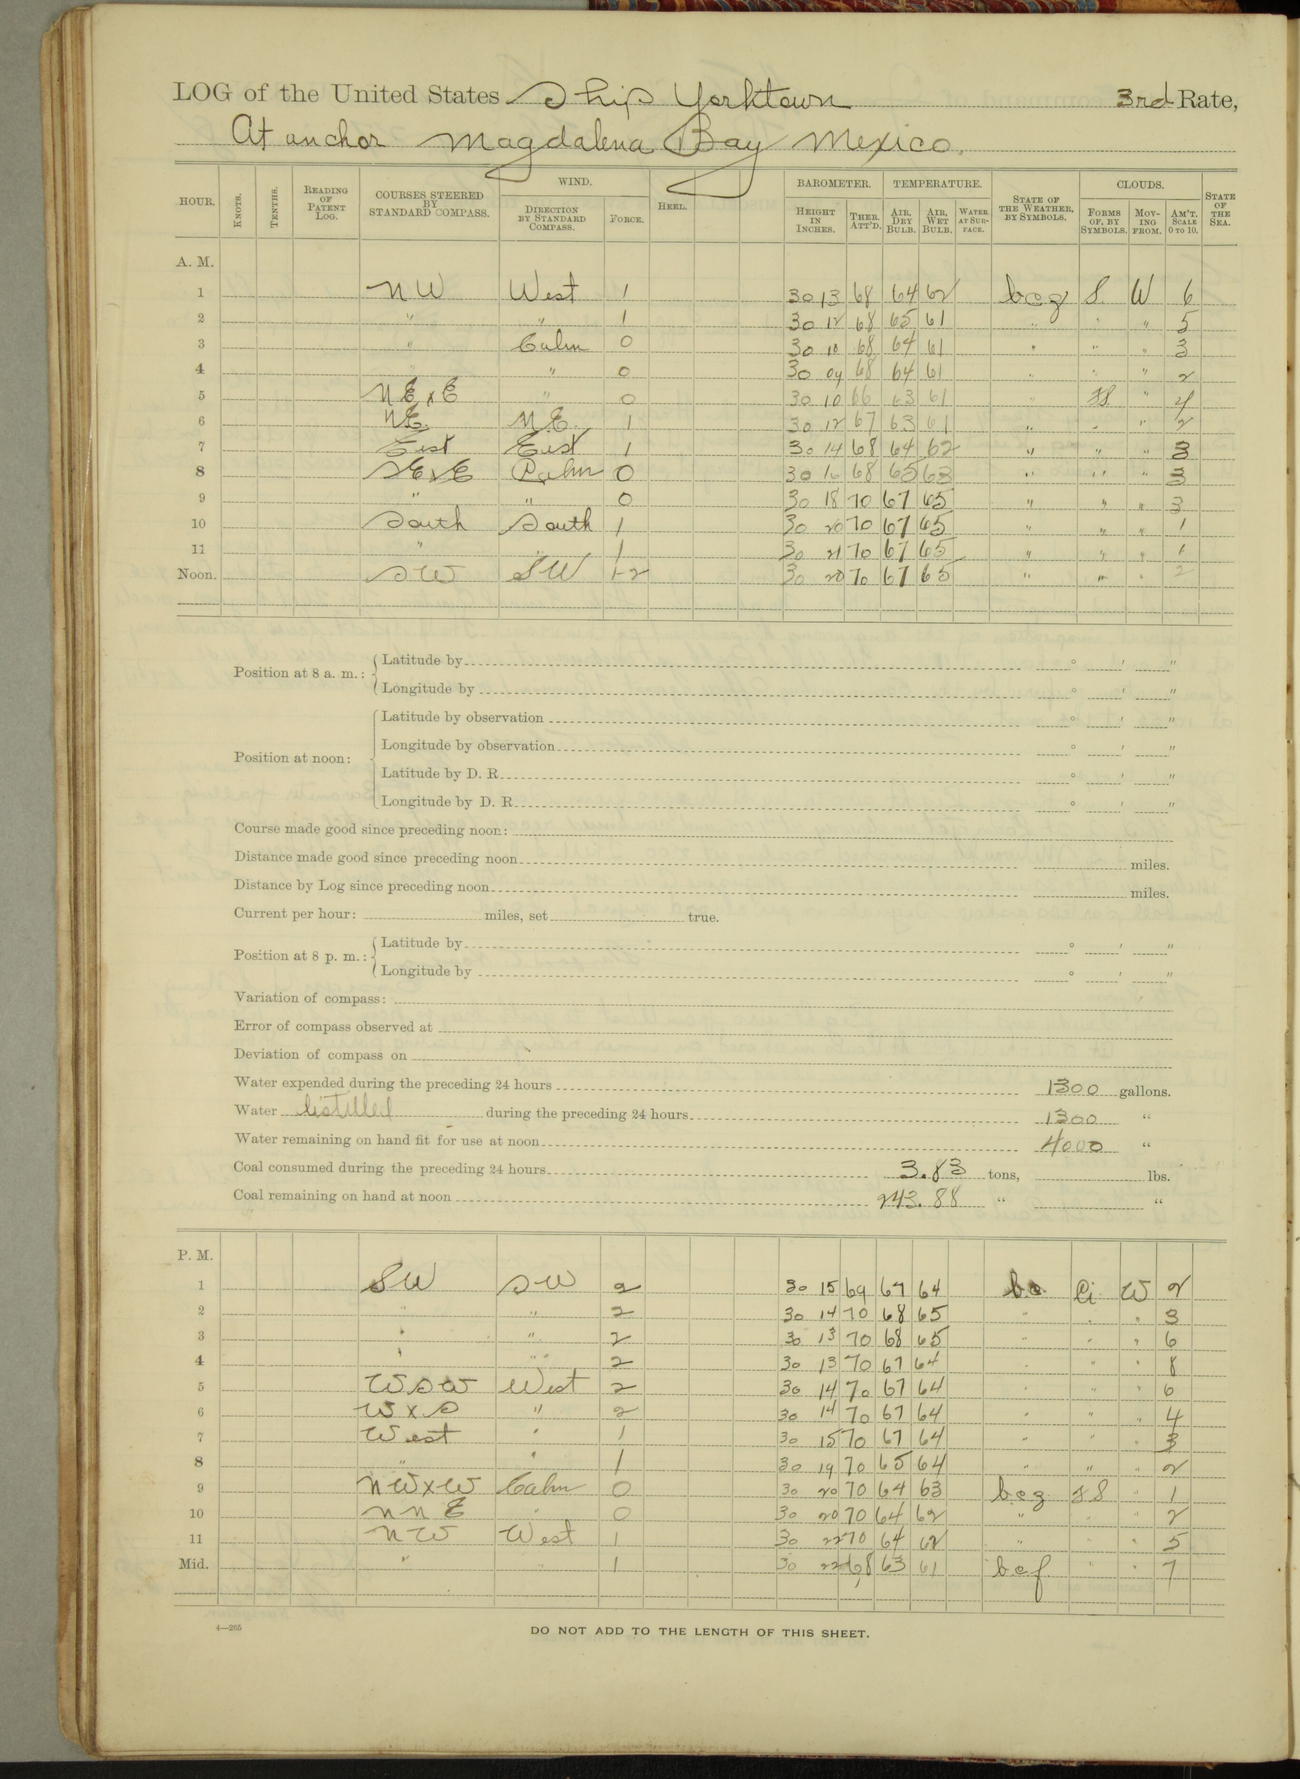 LOG of the United States Ship Yorktown 3rd Rate,
At anchor Magdalena Bay Mexico.
HOUR. KNOTS. TENTHS. READING OF PATENT LOG. COURSES STEERED BY STANDARD COMPASS. WIND. DIRECTION BY STANDARD COMPASS. FORCE. HEEL. BAROMETER. HEIGHT IN INCHES. THER. ATT'D. TEMPERATURE. AIR, DRY BULB. AIR, WET BULB. WATER AT SURFACE. STATE OF THE WEATHER, BY SYMBOLS. CLOUDS. FORMS OF, BY SYMBOLS. MOVING FROM. AM'T. SCALE 0 TO 10. STATE OF THE SEA.
A. M.
1 NW West 1 30 13 68 64 62 bcz S. W 6
2 " " 1 30 12 68 65 61 " " " 5
3 " Calm 0 30 10 68 64 61 " " " 3
4 " " 0 30 09 68 64 61 " " " 2
5 NExE " 0 30 10 66 63 61 " " 4
6 NE. N.E. 1 30 12 67 63 61 " " " 2
7 East East 1 30 14 68 64 62 " " " 3
8 SExE Calm 0 30 16 68 65 63 " " " 3
9 " " 0 30 18 70 67 65 " " " 3
10 South South 1 30 20 70 67 65 " " " 1
11 " " 1 30 21 70 67 65 " " " 1
Noon. SW SW 1-2 30 20 70 67 65 " " " 2
Position at 8 a. m.: Latitude by ° ' "
Longitude by ° ' "
Position at noon: Latitude by observation ° ' "
Longitude by observation ° ' "
Latitude by D. R. ° ' "
Longitude by D. R. ° ' "
Course made good since preceding noon:
Distance made good since preceding noon miles.
Distance by Log since preceding noon miles.
Current per hour: miles, set true.
Position at 8 p. m.: Latitude by ° ' "
Longitude by ° ' "
Variation of compass:
Error of compass observed at
Deviation of compass on
Water expended during the preceding 24 hours 1300 gallons.
Water distilled during the preceding 24 hours 1300 "
Water remaining on hand fit for use at noon 4000 "
Coal consumed during the preceding 24 hours 3.83 tons, lbs.
Coal remaining on hand at noon 243.88 " "
P. M.
1 SW SW 2 30 15 69 67 64 bc Ci W 2
2 " " 2 30 14 70 68 65 " " " 3
3 " " 2 30 13 70 68 65 " " " 6
4 " " 2 30 13 70 67 64 " " " 8
5 WSW West 2 30 14 70 67 64 " " " 6
6 WxS " 2 30 14 70 67 64 " " " 4
7 West " 1 30 15 70 67 64 " " " 3
8 " " 1 30 19 70 65 64 " " " 2
9 NWxW Calm 0 30 20 70 64 63 bcz " 1
10 NNE " 0 30 20 70 64 62 " " " 2
11 NW West 1 30 22 70 64 62 " " " 5
Mid. " " 1 30 22 68 63 61 bcf " " 7
4—265
DO NOT ADD TO THE LENGTH OF THIS SHEET.